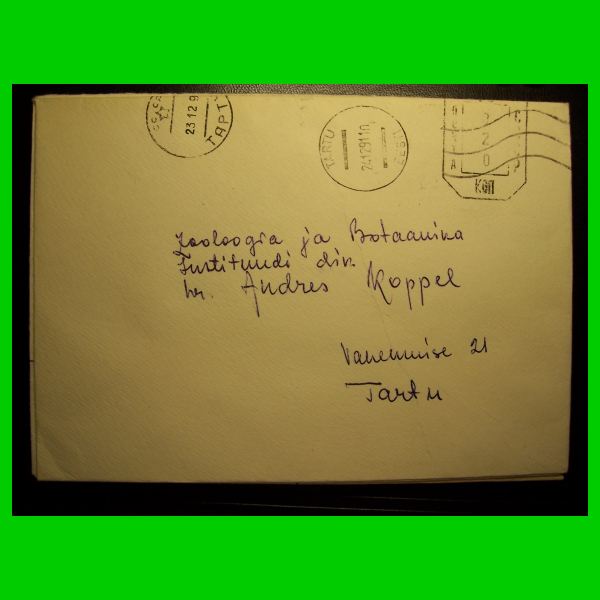 23 12 9
ТАРТ
TARTU
24129110
EESTI
20
коп
Zooloogia ja Botaanika
Instituudi dir.
hr. Andres Koppel
Vanemuise 21
Tartu